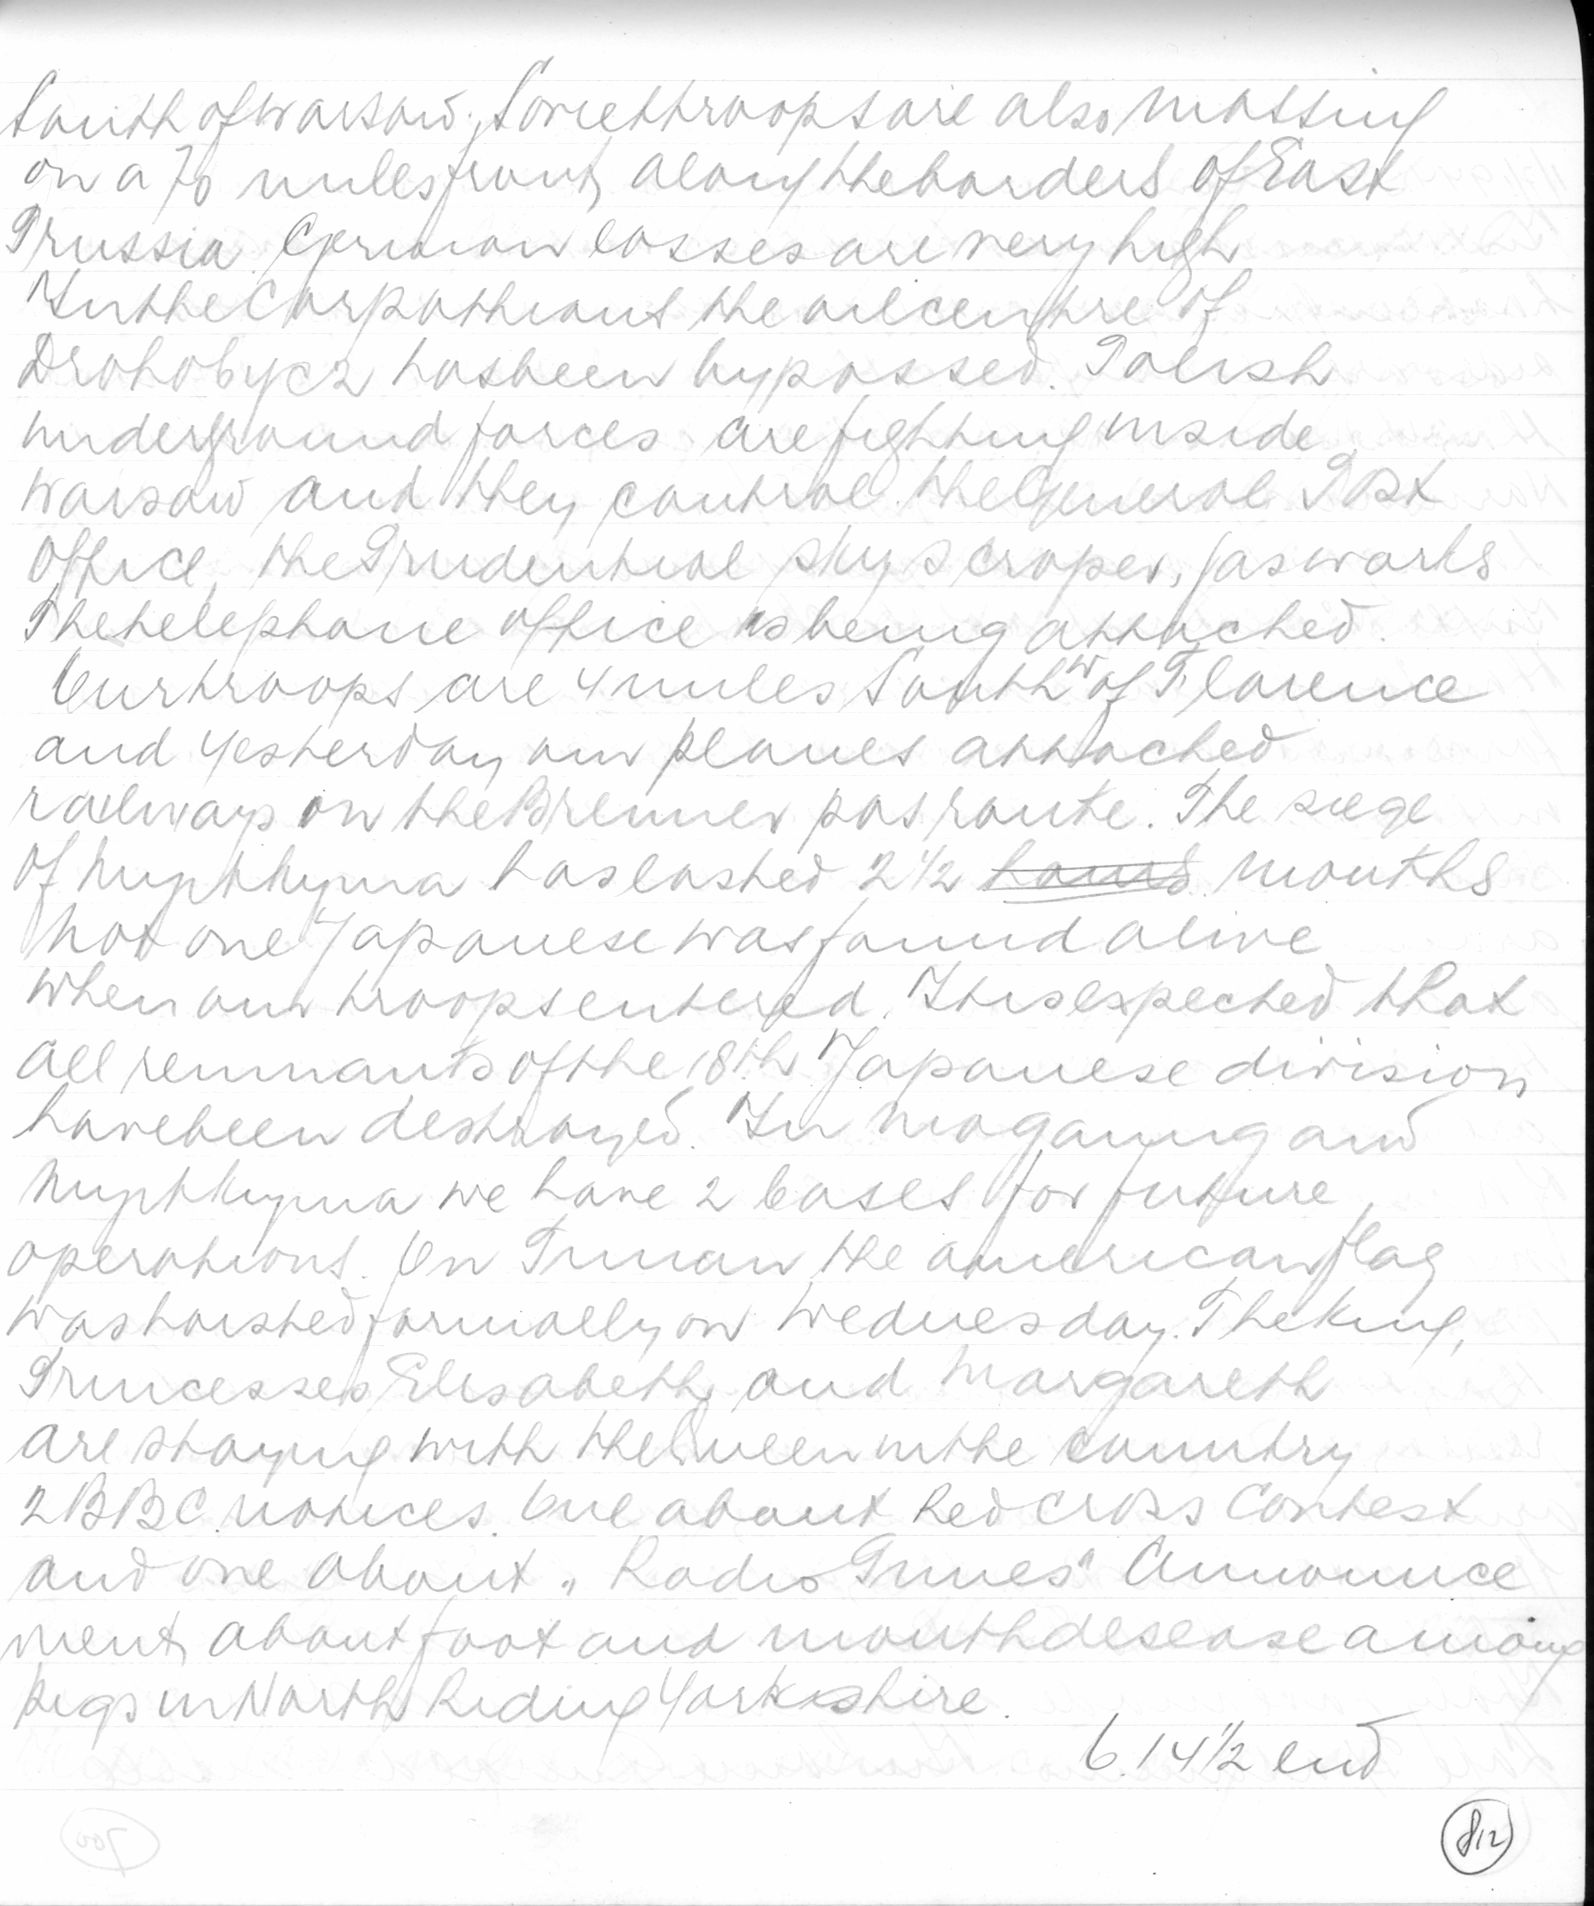 South of Warsaw. Soviet troops are also massing
on a 70 miles front along the borders of East
Prussia. German losses are very high
In the Carpathians the oilcentre of
Drohobycz has been bypassed. Polish
underground forces are fighting inside
Warsaw and they control the General Post
Office, the Prudential sky scraper, gasworks
The telephone office is being attacked.
Our troops are 4 miles South W of Florence
and yesterday our planes attacked
railways on the Brenner pas route. The siege
of has lasted 2 1/2 hours months
Not one Japanese was found alive
when our troops entered. It is expected that
all remnants of the 18th Japanese division
have been destroyed. In Mogaung and
we have 2 bases for future
operations. On the american flag
was hoisted formally on Wednesday. The King,
Princesses Elisabeth and Margareth
are staying with the Queen in the country
2 BBC notices. One about Red Cross Contest
and one about „ Radio Times" Announce
ment about foot and mouth desease among
pigs in North Riding Yorkshire.
6.14 1/2 end
812